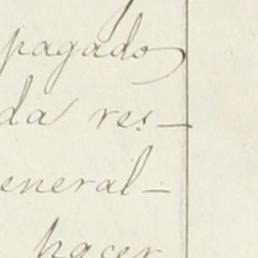 pagado
da res-
eneral-
hacer